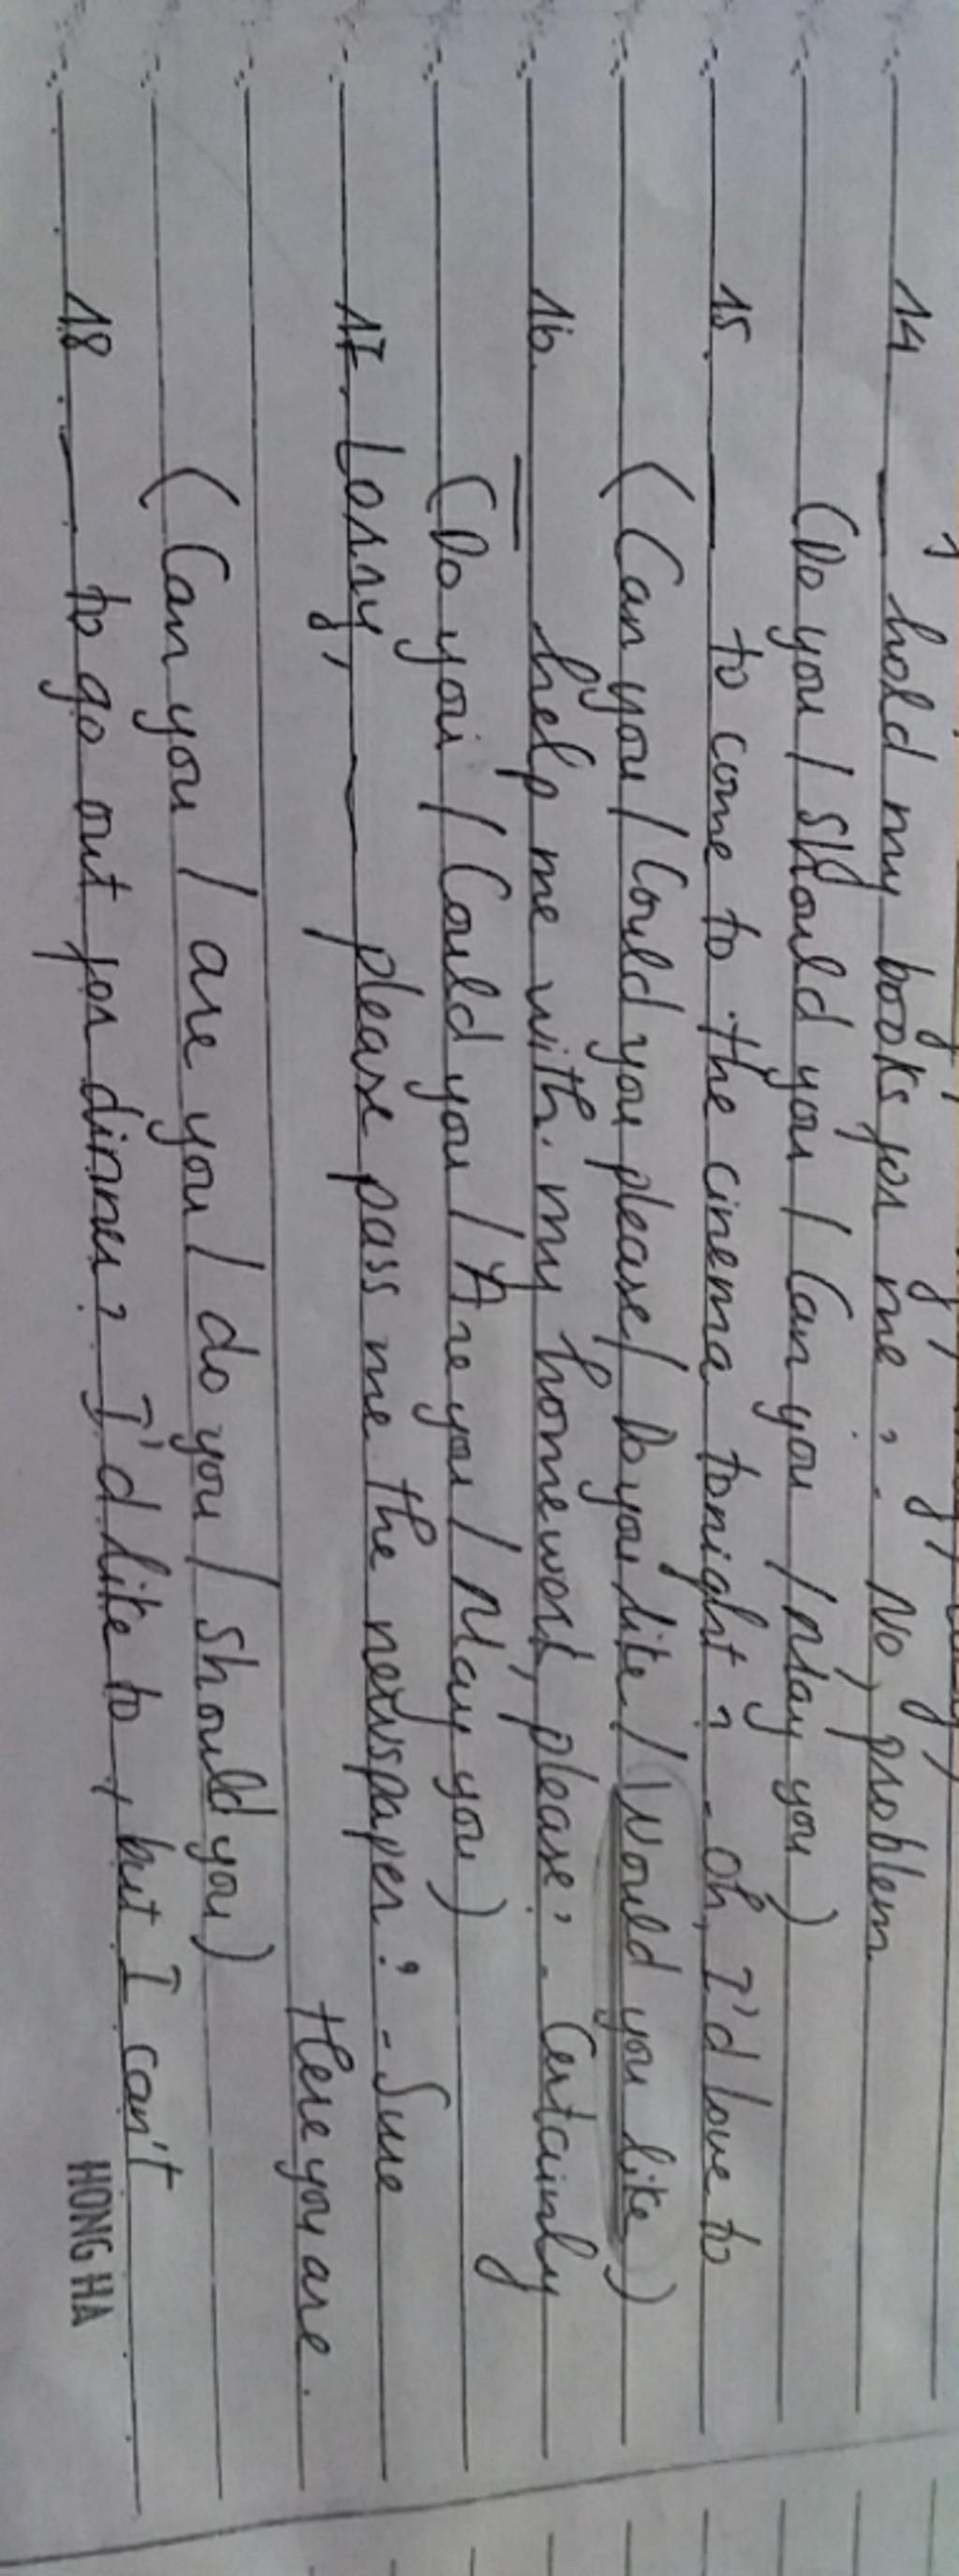 14 ___ hold my books for me ? - No, problem
(Do you / Should you / Can you / May you)
15. ___ to come to the cinema tonight ? - Oh, I'd love to
(Can you / Could you please / Do you like / Would you like)
16. ___ help me with my homework, please? - Certainly
(Do you / Could you / Are you / May you)
17. Lorry, ___ please pass me the newspaper? - Sure
Here you are.
(Can you / are you / do you / should you)
18. ___ to go out for dinner? I'd like to, but I can't
HONG HA